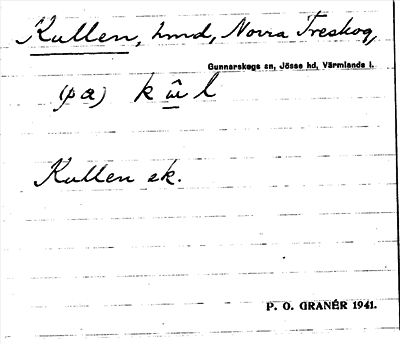 Kullen, hmd, Norra Treskog,
Gunnarskogs sn, Jösse hd, Värmlands l.
(på) kûl
Kullen ek.
P. O. GRANÉR 1941.